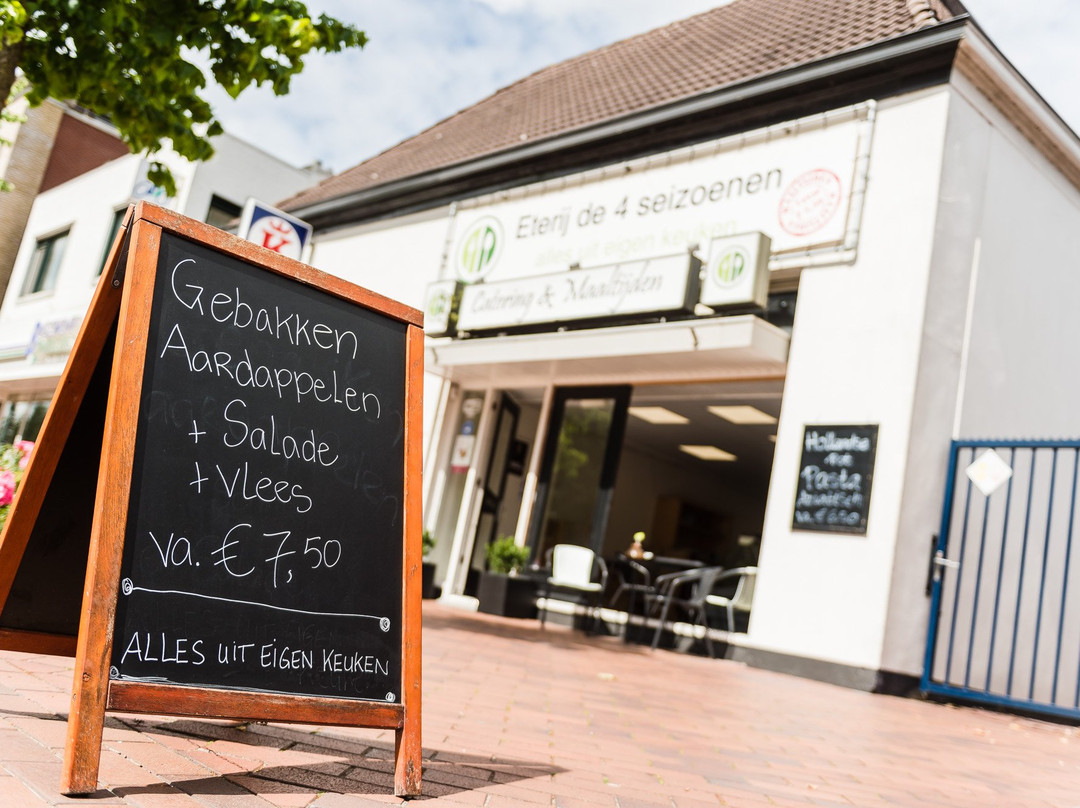 Gebakken
Aardappelen
+ Salade
+ Vlees
va. € 7,50
ALLES UIT EIGEN KEUKEN
Eterij de 4 seizoenen
alles uit eigen keuken
Catering & Maaltijden
K
Pasta